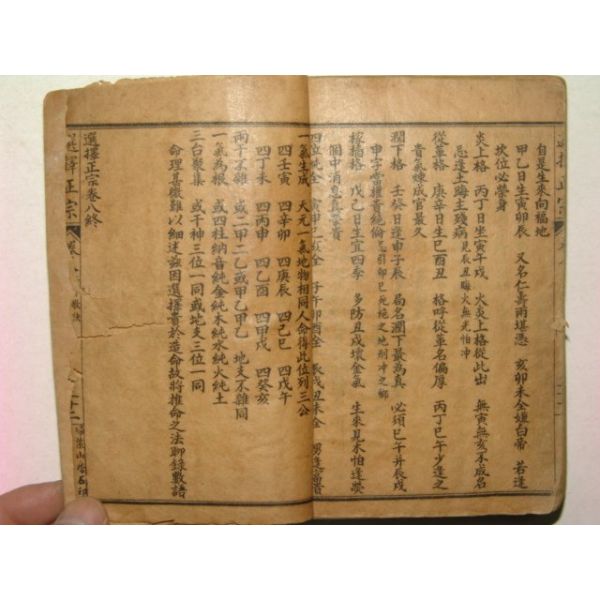 自是生來向福地
甲乙日生寅卯辰 又名仁壽兩堪憑 亥卯未全嫌白帝 若逢
坎位必榮身
炎上格 丙丁日坐寅午戌 火炎上格從此出 無寅無亥不成名
忌逢土晦主殘病 見辰丑晦火無光怕冲
從革格 庚辛日生巳酉丑 格呼從革名偏厚 丙丁巳午少逢之
貴氣煉成官最久
潤下格 壬癸日逢申子辰 局名潤下最高真 必須巳午并辰戌
申子當權貴絕倫
稼穡格 戊己日生宜四季 多防丑戌壞金氣 生來見木怕逢癸
個中消息真榮貴
四位純全 寅申巳亥全 子午卯酉全 辰戌丑未全
一氣生成 天元一氣地物相同人命得此位列三公
四壬寅 四辛卯 四庚辰 四己巳 四戊午
四丁未 四丙申 四乙酉 四甲戌 四癸亥
兩干不雜 或二甲二乙或甲乙甲乙 地支不雜同
一氣為根 或四柱納音純金純木純水純火純土
三台聚集 或干神三位一同或地支三位一同
命理甚微難以細述茲因選擇書於造命故將推命之法聊錄數語
選擇正宗卷八終
選擇正宗